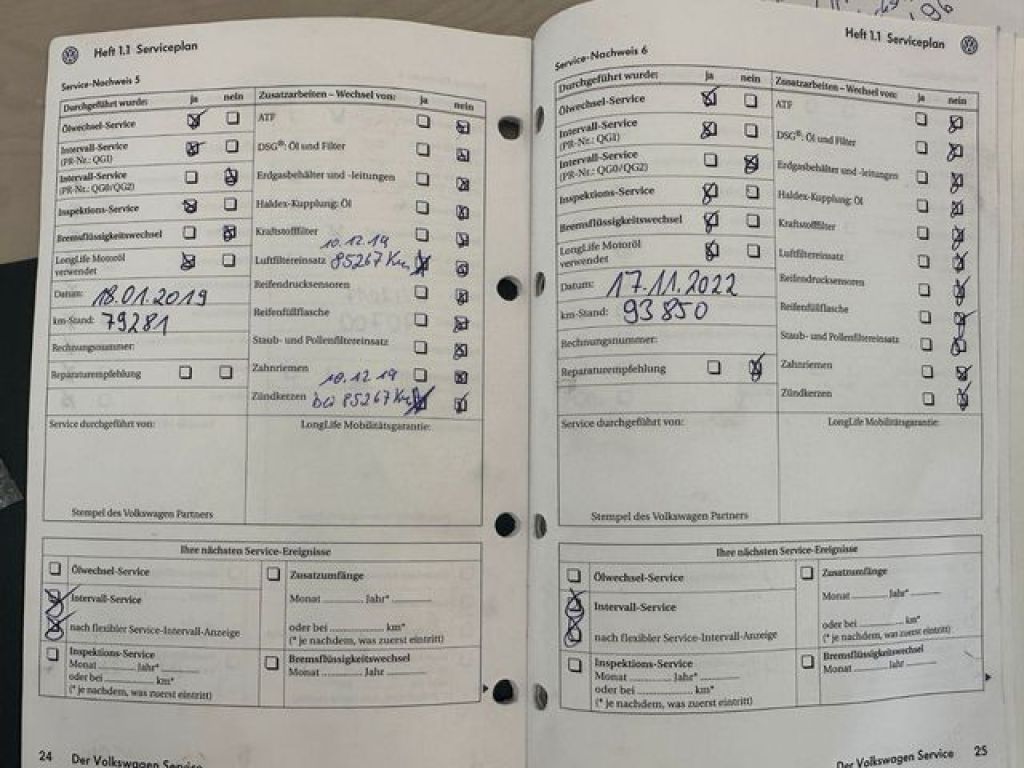 Heft 1.1 Serviceplan
Service-Nachweis 5
Durchgeführt wurde: ja nein
Ölwechsel-Service
Intervall-Service
(PR-Nr.: QG1)
Intervall-Service
(PR-Nr.: QG0/QG2)
Inspektions-Service
Bremsflüssigkeitswechsel
LongLife Motoröl
verwendet
Datum: 18.01.2019
km-Stand: 79281
Rechnungsnummer:
Reparaturempfehlung
Zusatzarbeiten – Wechsel von: ja nein
ATF
DSG®: Öl und Filter
Erdgasbehälter und -leitungen
Haldex-Kupplung: Öl
Kraftstofffilter
10.12.19
Luftfiltereinsatz 85267 Km
Reifendrucksensoren
Reifenfüllflasche
Staub- und Pollenfiltereinsatz
Zahnriemen
10.12.19
Zündkerzen bei 85267 Km
Service durchgeführt von:
LongLife Mobilitätsgarantie:
Stempel des Volkswagen Partners
Ihre nächsten Service-Ereignisse
Ölwechsel-Service
Intervall-Service
nach flexibler Service-Intervall-Anzeige
Inspektions-Service
Monat Jahr*
oder bei km*
(* je nachdem, was zuerst eintritt)
Zusatzumfänge
Monat Jahr*
oder bei km*
(* je nachdem, was zuerst eintritt)
Bremsflüssigkeitswechsel
Monat Jahr
24 Der Volkswagen Service
Heft 1.1 Serviceplan
Service-Nachweis 6
Durchgeführt wurde: ja nein
Ölwechsel-Service
Intervall-Service
(PR-Nr.: QG1)
Intervall-Service
(PR-Nr.: QG0/QG2)
Inspektions-Service
Bremsflüssigkeitswechsel
LongLife Motoröl
verwendet
Datum: 17.11.2022
km-Stand: 93850
Rechnungsnummer:
Reparaturempfehlung
Zusatzarbeiten – Wechsel von: ja nein
ATF
DSG®: Öl und Filter
Erdgasbehälter und -leitungen
Haldex-Kupplung: Öl
Kraftstofffilter
Luftfiltereinsatz
Reifendrucksensoren
Reifenfüllflasche
Staub- und Pollenfiltereinsatz
Zahnriemen
Zündkerzen
Service durchgeführt von:
LongLife Mobilitätsgarantie:
Stempel des Volkswagen Partners
Ihre nächsten Service-Ereignisse
Ölwechsel-Service
Intervall-Service
nach flexibler Service-Intervall-Anzeige
Inspektions-Service
Monat Jahr*
oder bei km*
(* je nachdem, was zuerst eintritt)
Zusatzumfänge
Monat Jahr*
oder bei km*
(* je nachdem, was zuerst eintritt)
Bremsflüssigkeitswechsel
Monat Jahr
Der Volkswagen Service 25